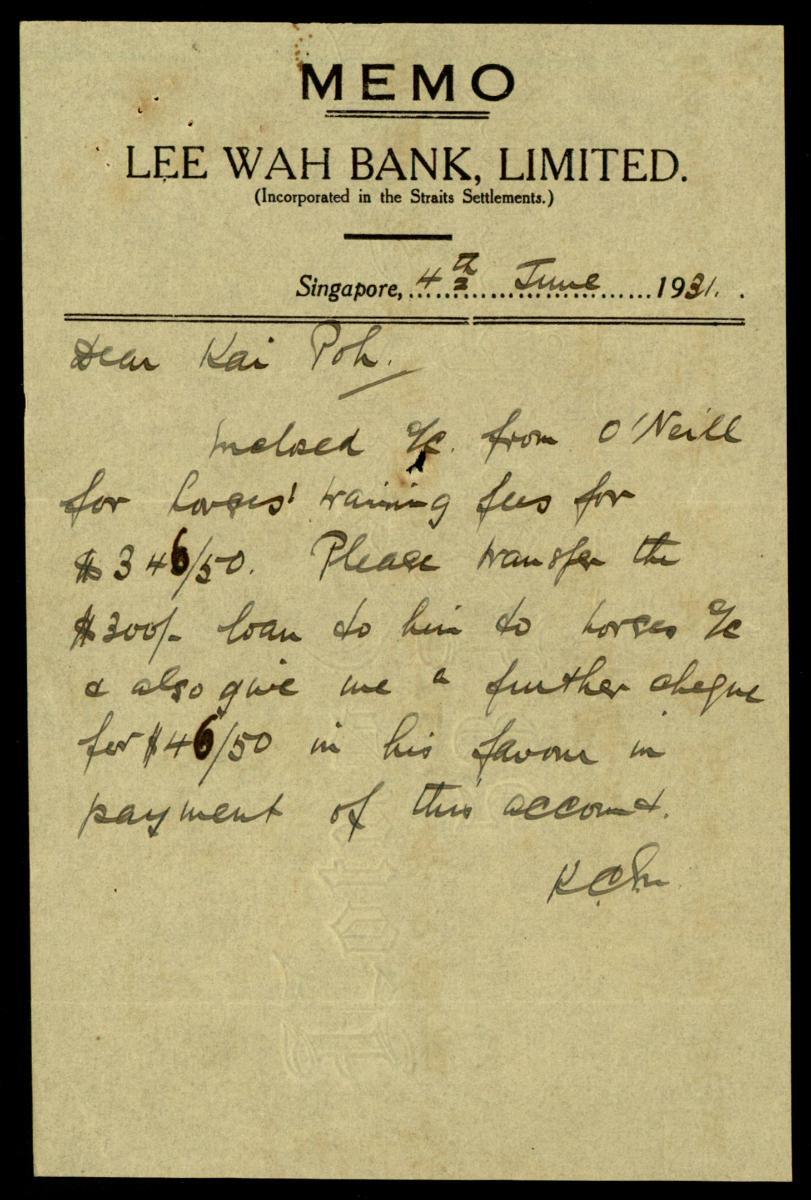 MEMO
LEE WAH BANK, LIMITED.
(Incorporated in the Straits Settlements.)
Singapore, 4th June 1931.
Dear Kai Poh.
Inclosed a/c. from O'Neill
for horses' training fees for
$346/50. Please transfer the
$300/- loan to him to horses a/c
& also give me a further cheque
for $46/50 in his favour in
payment of this account.